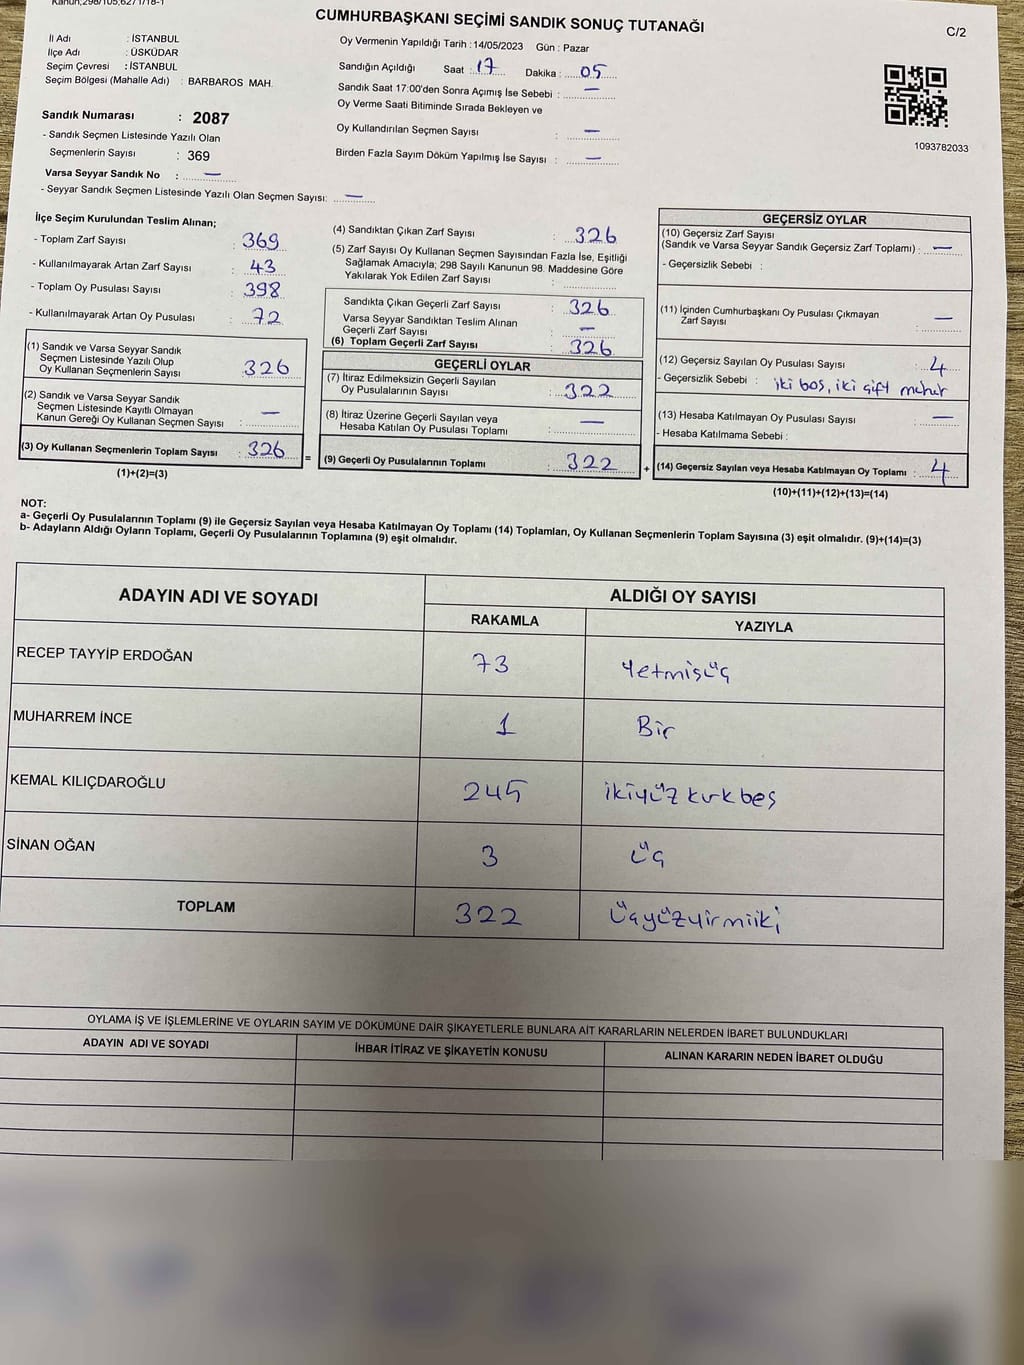 Kanun;298/105,6271/18-1
CUMHURBAŞKANI SEÇİMİ SANDIK SONUÇ TUTANAĞI
C/2
İl Adı : İSTANBUL
İlçe Adı : ÜSKÜDAR
Seçim Çevresi : İSTANBUL
Seçim Bölgesi (Mahalle Adı) : BARBAROS MAH.
Sandık Numarası : 2087
- Sandık Seçmen Listesinde Yazılı Olan
Seçmenlerin Sayısı : 369
Varsa Seyyar Sandık No : —
- Seyyar Sandık Seçmen Listesinde Yazılı Olan Seçmen Sayısı: —
Oy Vermenin Yapıldığı Tarih : 14/05/2023 Gün : Pazar
Sandığın Açıldığı Saat : 17 Dakika : 05
Sandık Saat 17:00'den Sonra Açımış İse Sebebi : —
Oy Verme Saati Bitiminde Sırada Bekleyen ve
Oy Kullandırılan Seçmen Sayısı : —
Birden Fazla Sayım Döküm Yapılmış İse Sayısı : —
1093782033
İlçe Seçim Kurulundan Teslim Alınan;
- Toplam Zarf Sayısı : 369
- Kullanılmayarak Artan Zarf Sayısı : 43
- Toplam Oy Pusulası Sayısı : 398
- Kullanılmayarak Artan Oy Pusulası : 72
(1) Sandık ve Varsa Seyyar Sandık
Seçmen Listesinde Yazılı Olup
Oy Kullanan Seçmenlerin Sayısı : 326
(2) Sandık ve Varsa Seyyar Sandık
Seçmen Listesinde Kayıtlı Olmayan
Kanun Gereği Oy Kullanan Seçmen Sayısı : —
(3) Oy Kullanan Seçmenlerin Toplam Sayısı : 326
(1)+(2)=(3)
=
(4) Sandıktan Çıkan Zarf Sayısı : 326
(5) Zarf Sayısı Oy Kullanan Seçmen Sayısından Fazla İse, Eşitliği
Sağlamak Amacıyla; 298 Sayılı Kanunun 98. Maddesine Göre
Yakılarak Yok Edilen Zarf Sayısı :
Sandıkta Çıkan Geçerli Zarf Sayısı : 326
Varsa Seyyar Sandıktan Teslim Alınan
Geçerli Zarf Sayısı : —
(6) Toplam Geçerli Zarf Sayısı : 326
GEÇERLİ OYLAR
(7) İtiraz Edilmeksizin Geçerli Sayılan
Oy Pusulalarının Sayısı : 322
(8) İtiraz Üzerine Geçerli Sayılan veya
Hesaba Katılan Oy Pusulası Toplamı : —
(9) Geçerli Oy Pusulalarının Toplamı : 322
+
GEÇERSİZ OYLAR
(10) Geçersiz Zarf Sayısı
(Sandık ve Varsa Seyyar Sandık Geçersiz Zarf Toplamı) : —
- Geçersizlik Sebebi :
(11) İçinden Cumhurbaşkanı Oy Pusulası Çıkmayan
Zarf Sayısı : —
(12) Geçersiz Sayılan Oy Pusulası Sayısı : 4
- Geçersizlik Sebebi : iki boş, iki çift mühür
(13) Hesaba Katılmayan Oy Pusulası Sayısı : —
- Hesaba Katılmama Sebebi :
(14) Geçersiz Sayılan veya Hesaba Katılmayan Oy Toplamı : 4
(10)+(11)+(12)+(13)=(14)
NOT:
a- Geçerli Oy Pusulalarının Toplamı (9) ile Geçersiz Sayılan veya Hesaba Katılmayan Oy Toplamı (14) Toplamları, Oy Kullanan Seçmenlerin Toplam Sayısına (3) eşit olmalıdır. (9)+(14)=(3)
b- Adayların Aldığı Oyların Toplamı, Geçerli Oy Pusulalarının Toplamına (9) eşit olmalıdır.
ADAYIN ADI VE SOYADI
ALDIĞI OY SAYISI
RAKAMLA YAZIYLA
RECEP TAYYİP ERDOĞAN 73 Yetmişüç
MUHARREM İNCE 1 Bir
KEMAL KILIÇDAROĞLU 245 ikiyüz kırkbeş
SİNAN OĞAN 3 üç
TOPLAM 322 Üçyüzyirmiiki
OYLAMA İŞ VE İŞLEMLERİNE VE OYLARIN SAYIM VE DÖKÜMÜNE DAİR ŞİKAYETLERLE BUNLARA AİT KARARLARIN NELERDEN İBARET BULUNDUKLARI
ADAYIN ADI VE SOYADI İHBAR İTİRAZ VE ŞİKAYETİN KONUSU ALINAN KARARIN NEDEN İBARET OLDUĞU